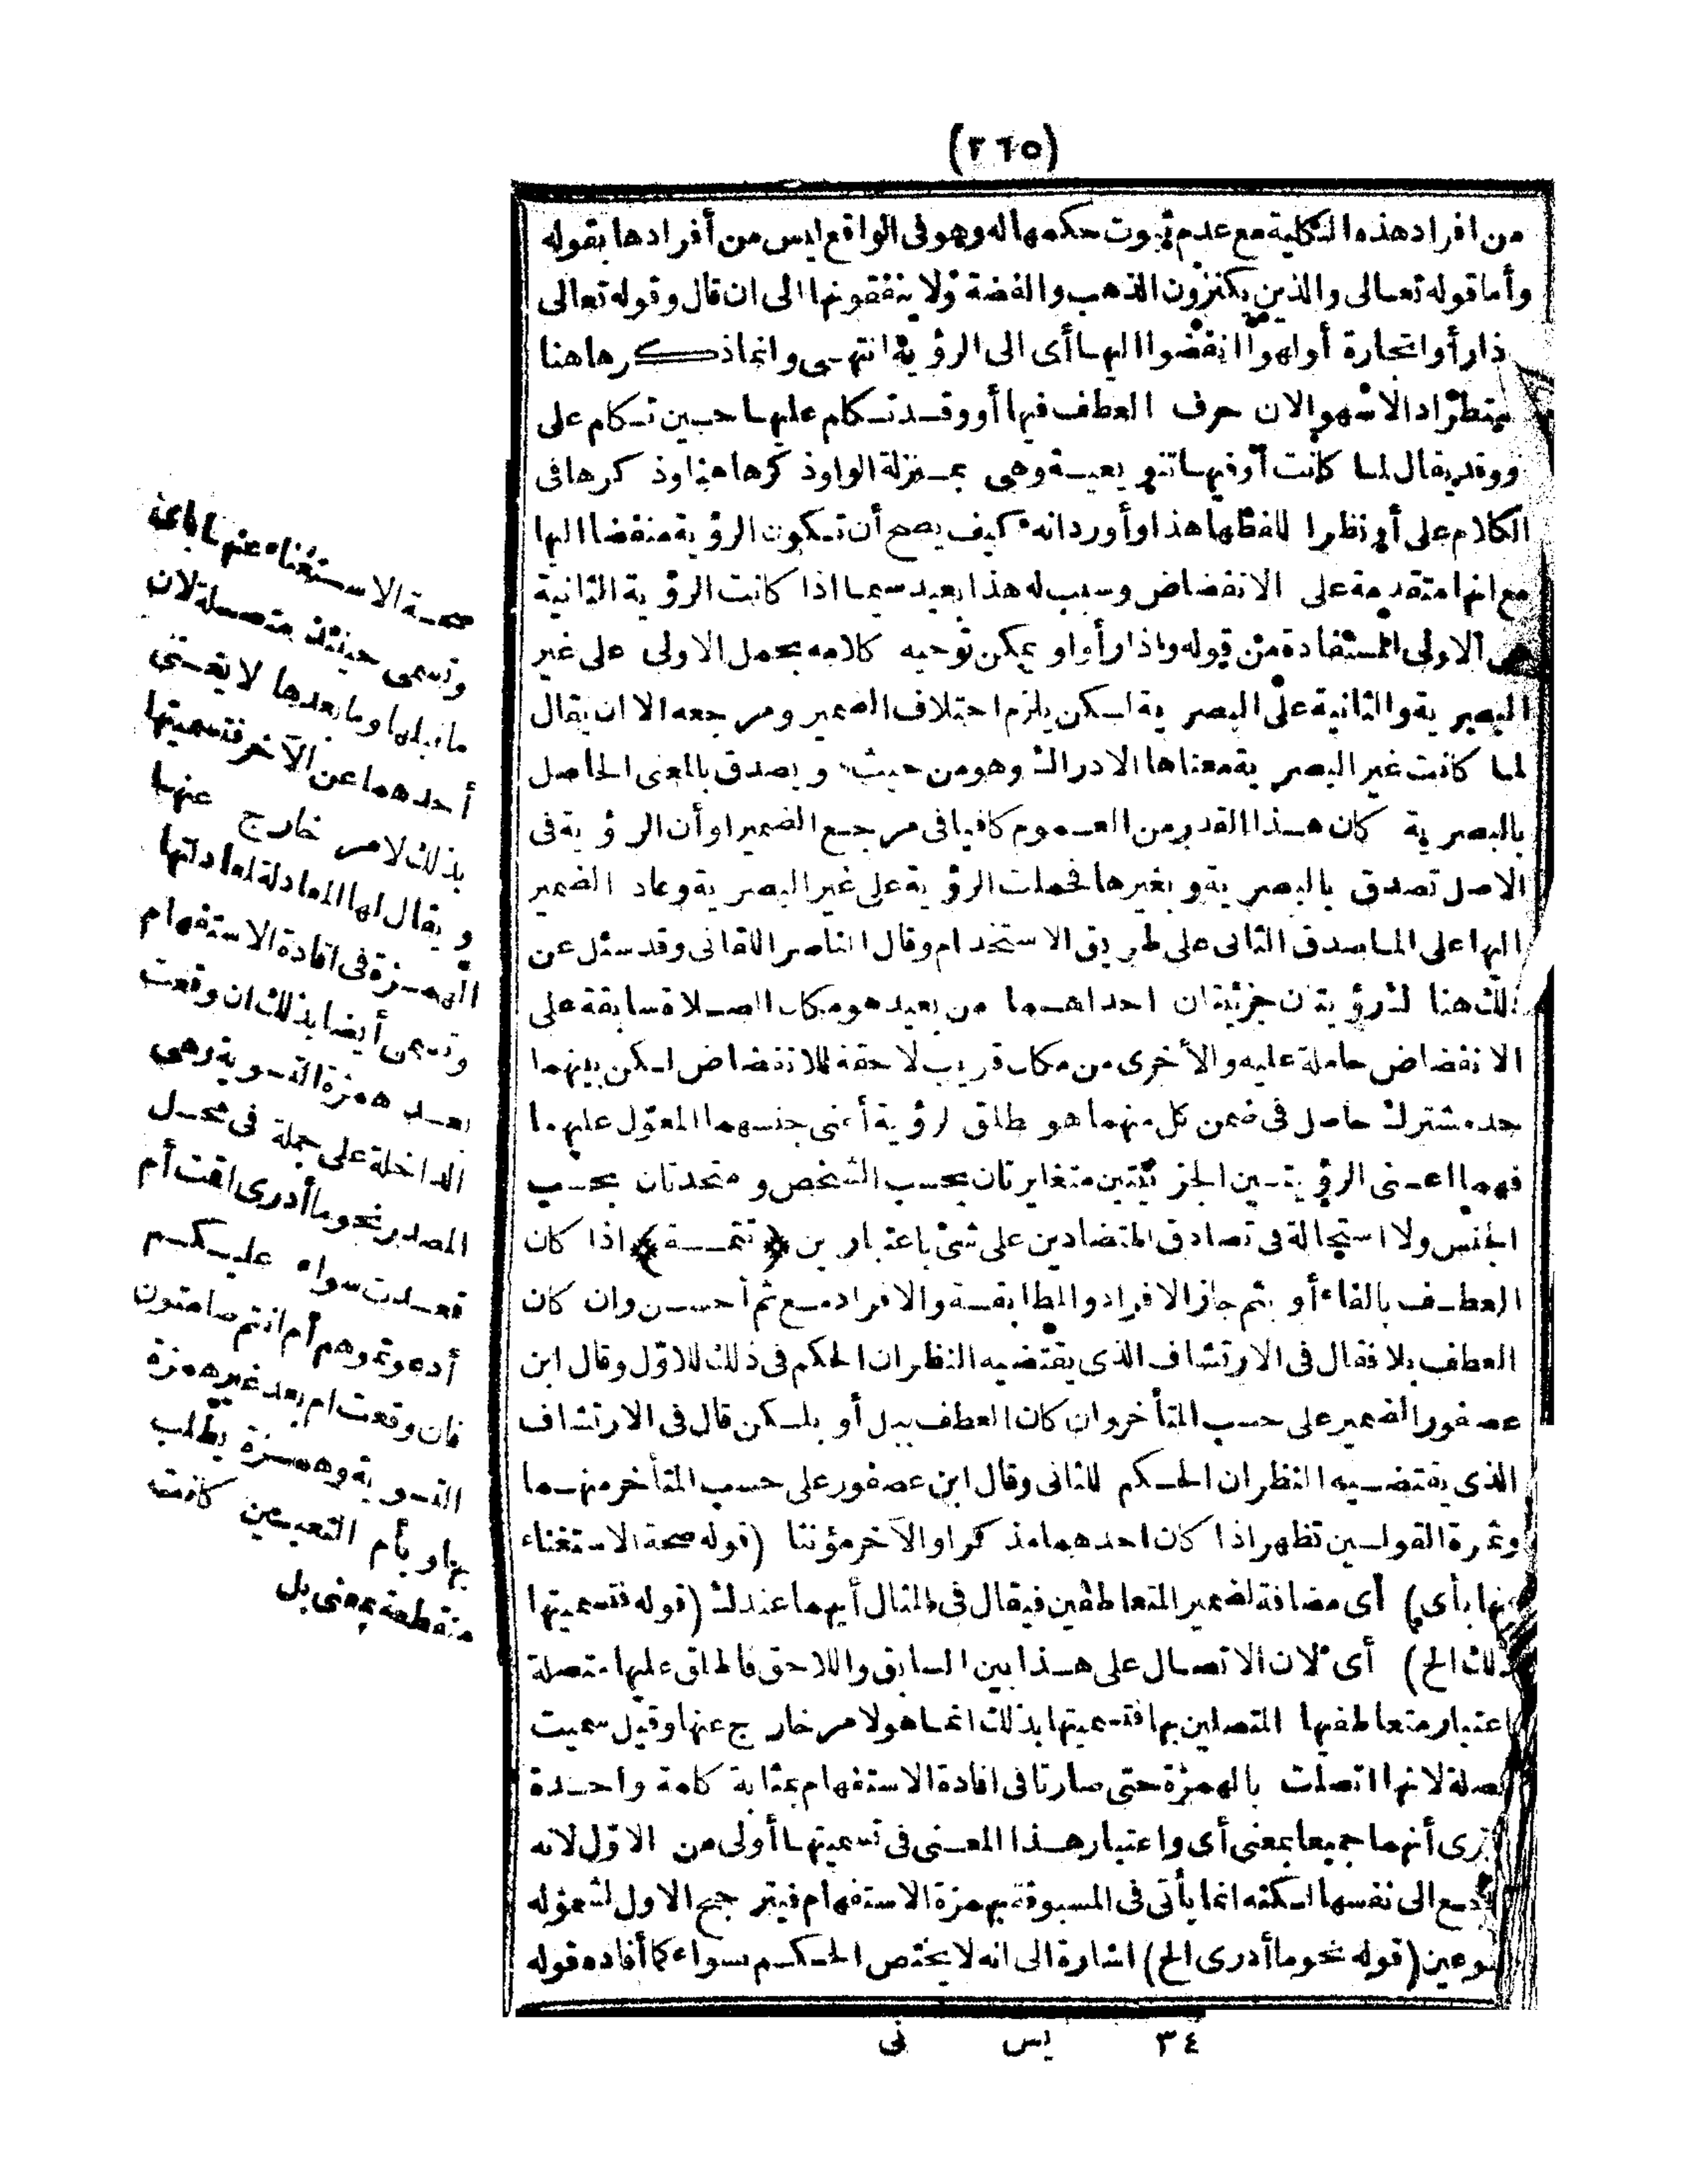 (٢٦٥)
من افراد هذه الكلية مع عدم ثبوت حكمها له وهو فى الواقع ليس من أفرادها بقوله
وأما قوله تعالى والذين يكنزون الذهب والفضة ولا ينفقونها الى ان قال وقوله تعالى
ذا رأوا تجارة أو لهوا انفضوا اليها أى الى الرؤية انتهى وانما ذكرها هنا
ستطرادا لاسهوا لان حرف العطف فيها أو وقد تكلم عليها حين تكلم على
ووقد يقال لما كانت أو فيها تنويعية وهى بمنزلة الواو ذكرها هنا وذكرها فى
الكلام على أو نظرا للفظها هذا وأورد انه كيف يصح أن تكون الرؤية منفضا اليها
مع انها متقدمة على الانفضاض وسبب له هذا بعيد سيما اذا كانت الرؤية الثانية
هى الاولى المستفادة من قوله واذا رأوا و يمكن توجيه كلامه بحمل الاولى على غير
البصرية والثانية على البصرية لكن يلزم اختلاف الضمير ومرجعه الا ان يقال
لما كانت غير البصرية معناها الادراك وهو من حيث و يصدق بالمعنى الحاصل
بالبصرية كان هذا القدر من العموم كافيا فى مرجع الضمير او أن الرؤية فى
الاصل تصدق بالبصرية و بغيرها فحملت الرؤية على غير البصرية وعاد الضمير
اليها على الماصدق الثانى على طريق الاستخدام وقال الناصر اللقانى وقد سئل عن
ذلك هنا لرؤيتان جزئيتان احداهما من بعيد هو مكان الصلاة سابقة على
الانفضاض حاملة عليه والأخرى من مكان قريب لاحقة للانفضاض لكن بينهما
حد مشترك حاصل فى ضمن كل منهما هو طلق لرؤية أعنى جنسهما المعوّل عليهما
فهما اعنى الرؤيتين الجزئيتين متغايرتان بحسب الشخص و متحدتان بحسب
الجنس ولا استحالة فى تصادق المتضادين على شئ باعتبارين ﴿تتمة﴾ اذا كان
العطف بالفاء أو بثم جاز الافراد والمطابقة والافراد مع ثم أحسن وان كان
العطف بلا فقال فى الارتشاف الذى يقتضيه النظر ان الحكم فى ذلك للاوّل وقال ابن
عصفور الضمير على حسب المتأخر وان كان العطف ببل أو بلكن قال فى الارتشاف
الذى يقتضيه النظر ان الحكم للثانى وقال ابن عصفور على حسب المتأخر منهما
وثمرة القولين تظهر اذا كان احدهما مذكرا والآخر مؤنثا (قوله صحة الاستغناء
عنها بأى) أى مضافة لضمير المتعاطفين فيقال فى المثال أيهما عندك (قوله فتسميتها
ذلك الخ) أى لان الاتصال على هذا بين السابق واللاحق فاطلق عليها متصلة
اعتبار متعاطفيها المتصلين بها فتسميتها بذلك انما هو لامر خارج عنها وقيل سميت
تصلة لانها اتصلت بالهمزة حتى صارتا فى افادة الاستفهام بمثابة كلمة واحدة
ترى أنهما جميعا بمعنى أى واعتبار هذا المعنى فى تسميتها أولى من الاوّل لانه
جع الى نفسها لكنه انما يأتى فى المسبوقة بهمزة الاستفهام فيترجح الاول لشموله
نوعين (قوله نحو ما أدرى الخ) اشارة الى انه لا يختص الحكم بسواء كما أفاده قوله
٣٤ يس نى
صحة الاستغناء عنها باى
وتسمى حينئذ متصلة لان
ما قبلها وما بعدها لا يغتنى
أحدهما عن الآخر فتسميتها
بذلك لامر خارج عنها
و يقال لها المعادلة لمعادلتها
الهمزة فى افادة الاستفهام
وتسمى أيضا بذلك ان وقعت
بعد همزة التسوية وهى
الداخلة على جملة فى محل
المصدر نحو ما أدرى اقمت أم
قعدت سواء عليكم
أدعوتموهم أم انتم صامتون
فان وقعت ام بعد غير همزة
التسوية وهمزة يطلب
بها وبأم التعيين كانت
منقطعة بمعنى بل